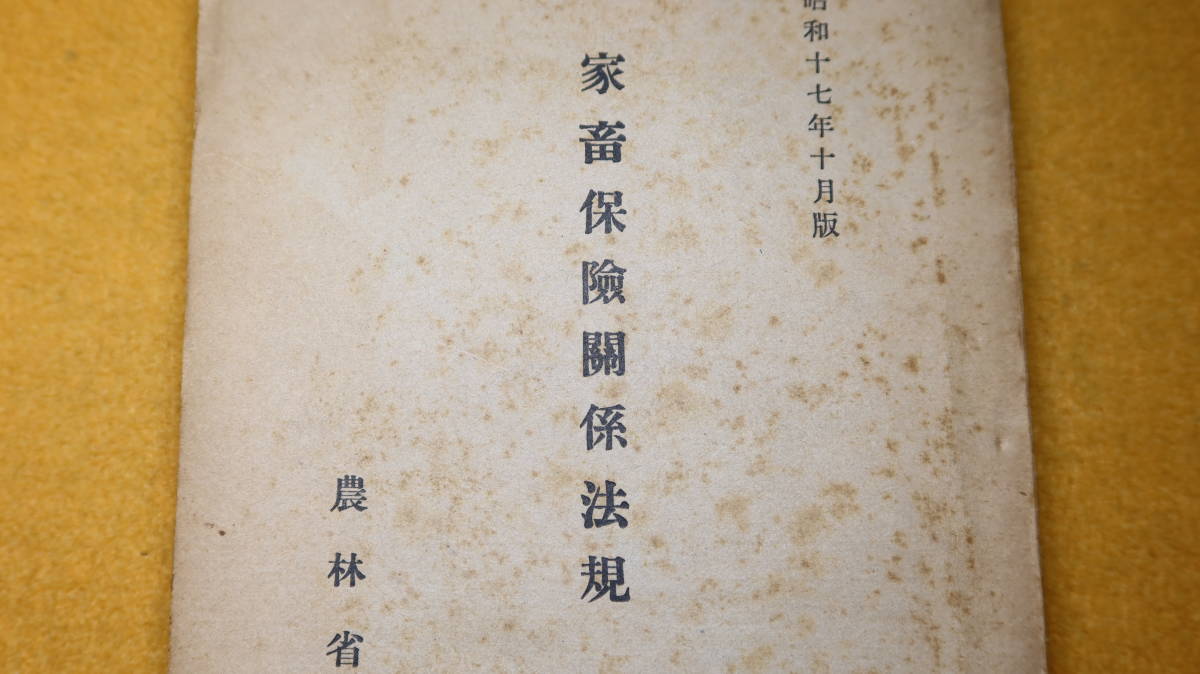 昭和十七年十月版
家畜保險關係法規
農林省